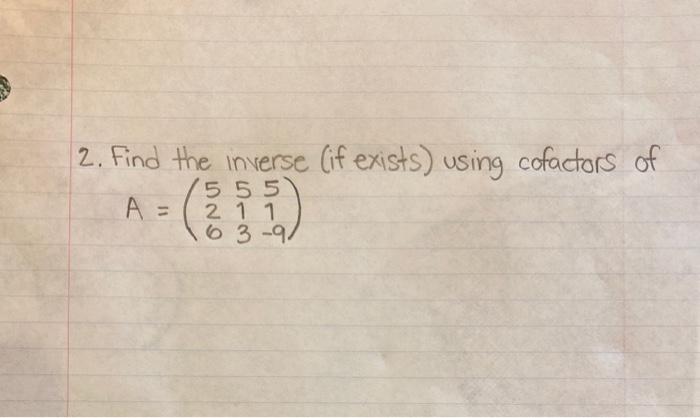 2. Find the inverse (if exists) using cofactors of
5 5 5
A = ( 2 1 1 )
6 3 -9